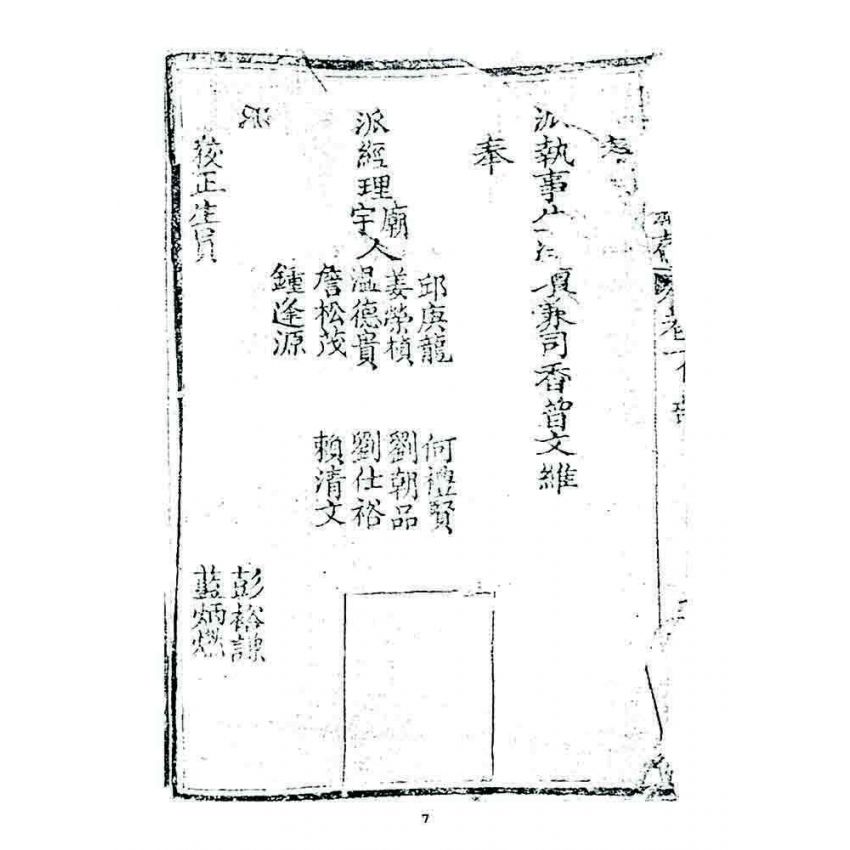 奉
派執事生 項兼司香曾文維
奉
派經理廟宇人
邱庚龍 何禮賢
姜榮楨 劉朝品
温德貴 劉仕裕
詹松茂 賴清文
鍾逢源
派
校正生員
彭裕謙
藍炳燃
7